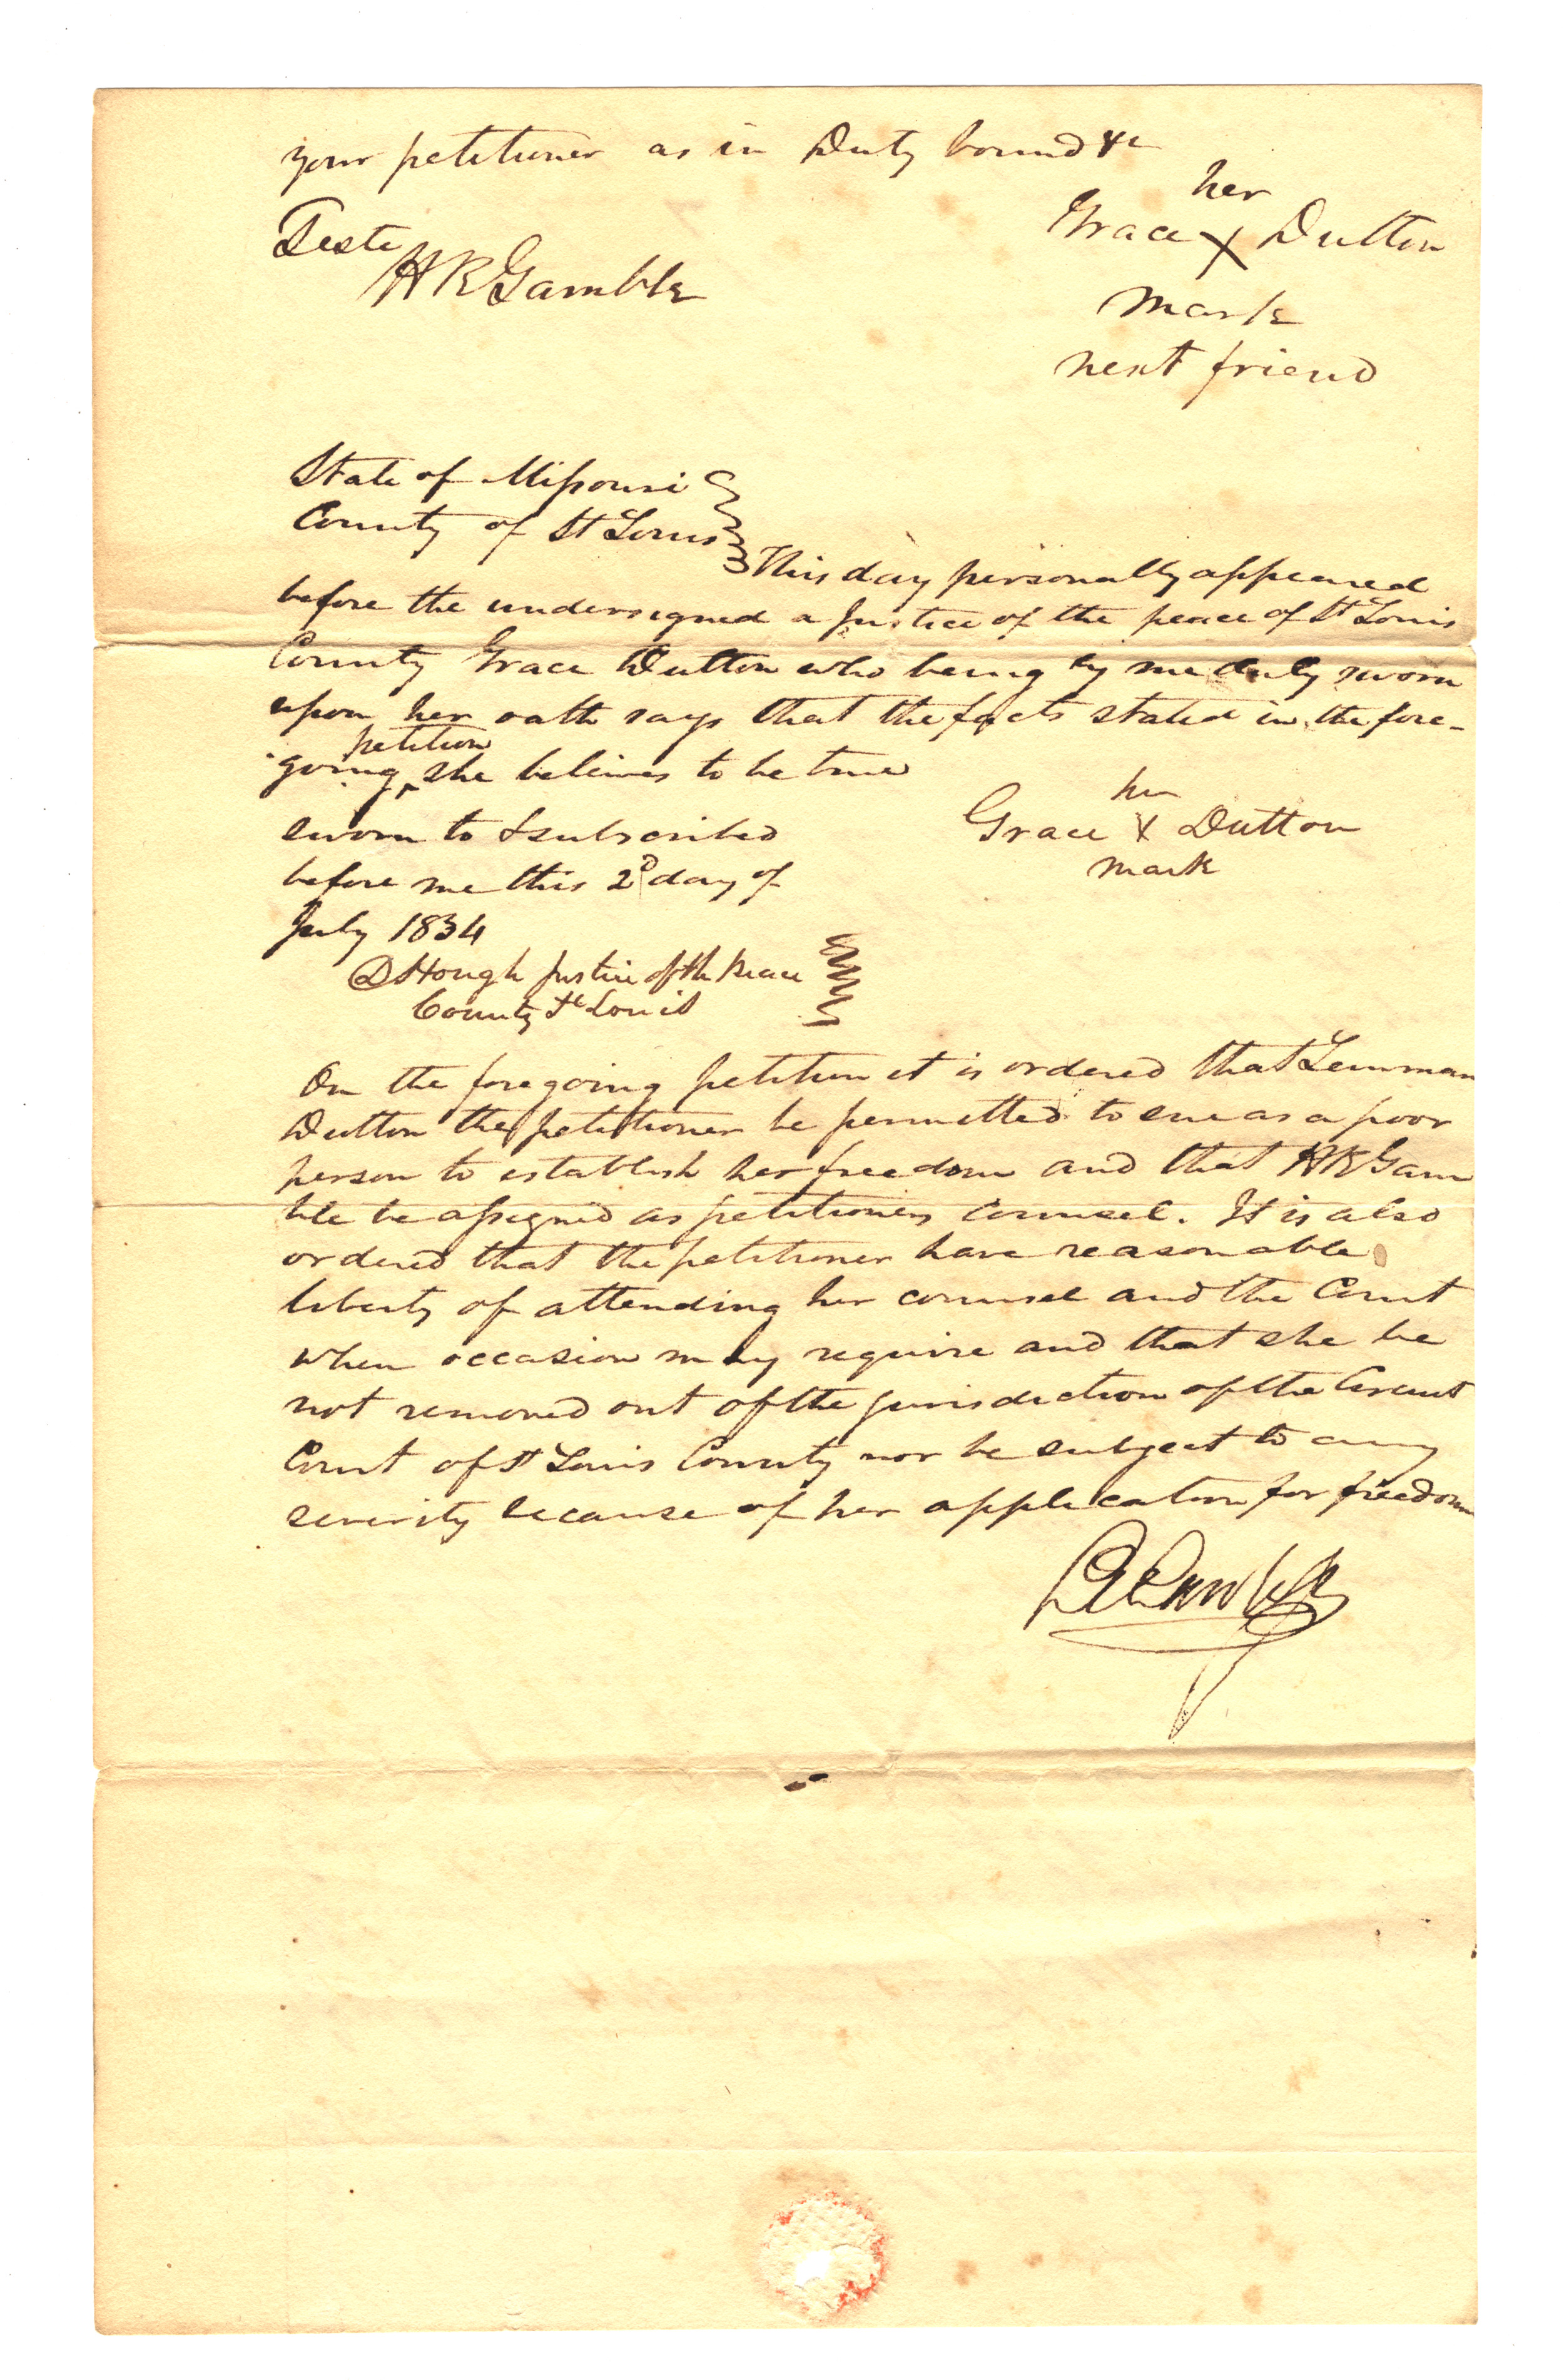 your petitioner as in Duty bound &c
her
Teste Grace X Dutton
H R Gamble
mark
next friend
State of Missouri
County of St Louis
This day personally appeared
before the undersigned a Justice of the peace of St Louis
County Grace Dutton who being by me duly sworn
upon her oath says that the facts stated in the fore-
petition
going ‸ she believes to be true
her
sworn to & subscribed Grace X Dutton
before me this 2d day of mark
July 1834
D Hough Justice of the Peace
County St Louis
On the foregoing petition it is ordered that
Dutton the petitioner be permitted to sue as a poor
person to establish her freedom and that H R Gam
ble be assigned as petitioners Counsel. It is also
ordered that the petitioner have reasonable
liberty of attending her counsel and the Court
when occasion may require and that she be
not removed out of the jurisdiction of the Circuit
Court of St Louis County nor be subject to any
severity because of her application for freedom